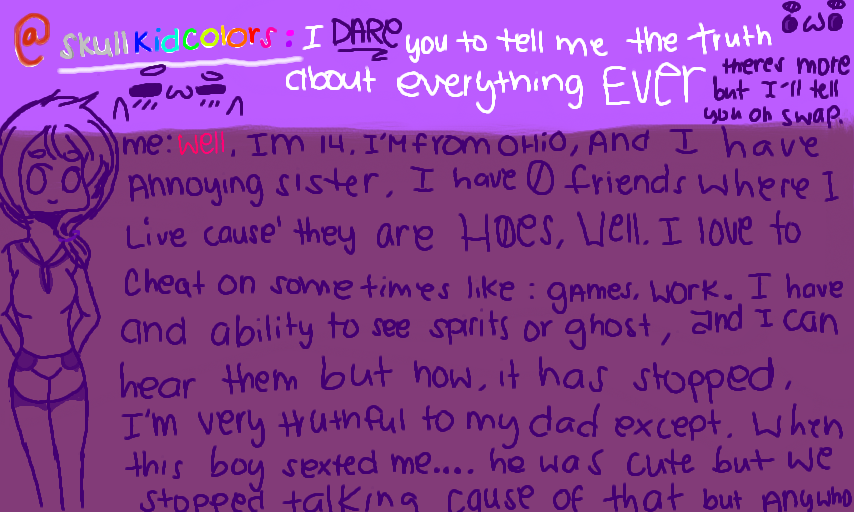 @skullkidcolors: I DARE you to tell me the truth
about everything EVER
theres more
but I'll tell
you on swap.
me: Well, Im 14. I'M from OHiO, And I have
Annoying sister, I have 0 friends where I
Live cause' they are HOes, Well. I love to
Cheat on some times like: gAmes, work. I have
and ability to see spirits or ghost, and I can
hear them but now, it has stopped,
I'm very truthful to my dad except. When
this boy sexted me.... he was cute but we
stopped talking cause of that but Anywho